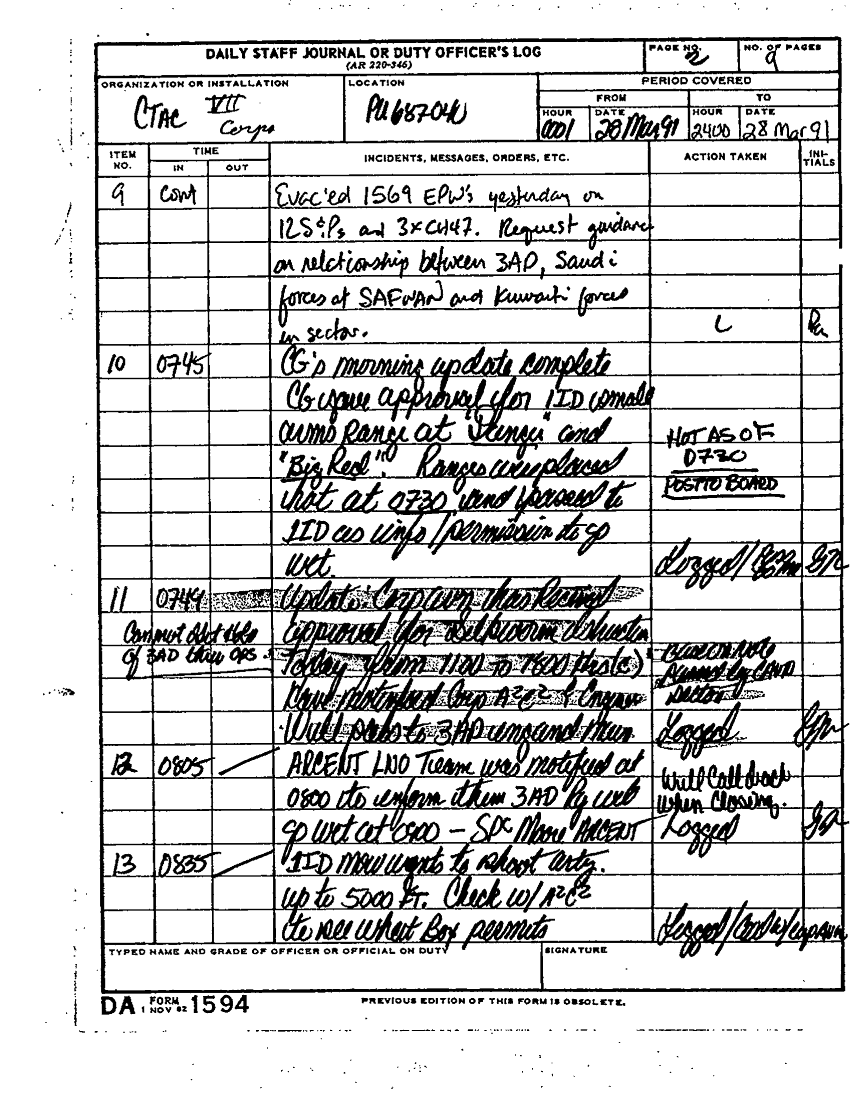 DAILY STAFF JOURNAL OR DUTY OFFICER'S LOG
(AR 220-346)
PAGE NO.
2
NO. OF PAGES
9
ORGANIZATION OR INSTALLATION
CTAC VII
Corps
LOCATION
PU687040
PERIOD COVERED
FROM
TO
HOUR
0001
DATE
28 Mar 91
HOUR
2400
DATE
28 Mar 91
ITEM NO.
TIME
IN
OUT
INCIDENTS, MESSAGES, ORDERS, ETC.
ACTION TAKEN
INITIALS
9 Cont Evac'ed 1569 EPW's yesterday on
12 S&Ps and 3xCH47. Request guidance
on relationship between 3AD, Saudi
forces at SAFWAN and Kuwaiti forces
in sector. L
10 0745 CG's morning update complete
CG gave approval for 1ID small
arms Range at and
"Big Red". Ranges were placed
hot at 0730 and passed to
1ID as info/permission to go
wet.
HOT AS OF
0730
POST TO BOARD
Logged/
11 0749 Update: Corp has Received
approval for
Today from 1100 to 1800 hrs(c)
Have Corp A2C2 & Engineer
Will to 3AD
of 3AD thru OPS.
Logged
12 0805 ARCENT LNO Team was notified at
0800 to inform them 3AD
go wet at 0900 - SPC ARCENT
Will Call back
when Closing.
Logged
13 0835 1ID now wants to shoot arty.
up to 5000 FT. Check w/A2C2
to see what Box permits
Logged/
TYPED NAME AND GRADE OF OFFICER OR OFFICIAL ON DUTY
SIGNATURE
DA FORM 1 NOV 62 1594
PREVIOUS EDITION OF THIS FORM IS OBSOLETE.